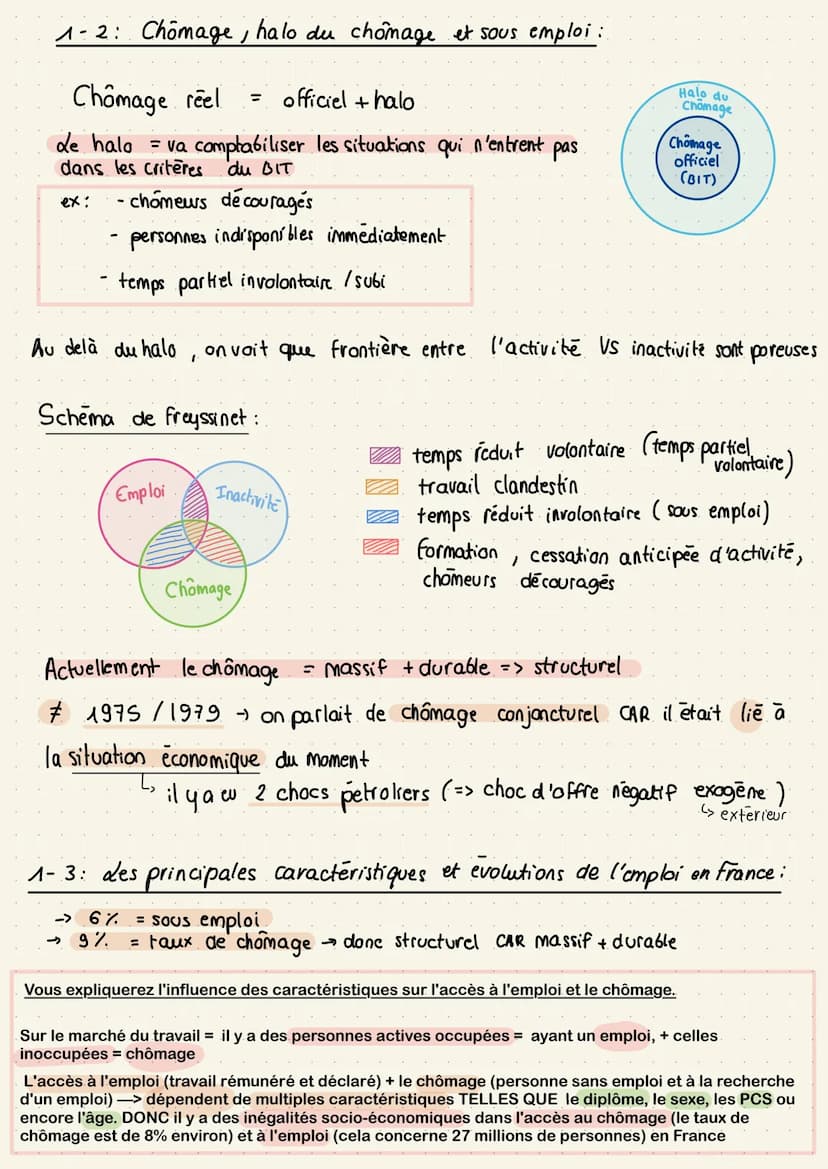 1-2: Chômage, halo du chômage et sous emploi :
Chômage réel = officiel + halo
Halo du
Chômage
Chômage
officiel
(BIT)
Le halo = va comptabiliser les situations qui n'entrent pas
dans les critères du BIT
ex : - chômeurs découragés
- personnes indisponibles immédiatement
- temps partiel involontaire / subi
Au delà du halo, on voit que frontière entre l'activité VS inactivité sont poreuses
Schéma de Freyssinet :
Emploi
Inactivité
Chômage
temps réduit volontaire (temps partiel
volontaire)
travail clandestin
temps réduit involontaire (sous emploi)
formation, cessation anticipée d'activité,
chômeurs découragés
Actuellement le chômage = massif + durable => structurel
≠ 1975 / 1979 → on parlait de chômage conjoncturel CAR il était lié à
la situation économique du moment
↳ il y a eu 2 chocs pétroliers (=> choc d'offre négatif exogène)
↳ extérieur
1-3: Les principales caractéristiques et évolutions de l'emploi en France :
-> 6% = sous emploi
→ 9% = taux de chômage → donc structurel CAR massif + durable
Vous expliquerez l'influence des caractéristiques sur l'accès à l'emploi et le chômage.
Sur le marché du travail = il y a des personnes actives occupées = ayant un emploi, + celles
inoccupées = chômage
L'accès à l'emploi (travail rémunéré et déclaré) + le chômage (personne sans emploi et à la recherche
d'un emploi) —> dépendent de multiples caractéristiques TELLES QUE le diplôme, le sexe, les PCS ou
encore l'âge. DONC il y a des inégalités socio-économiques dans l'accès au chômage (le taux de
chômage est de 8% environ) et à l'emploi (cela concerne 27 millions de personnes) en France